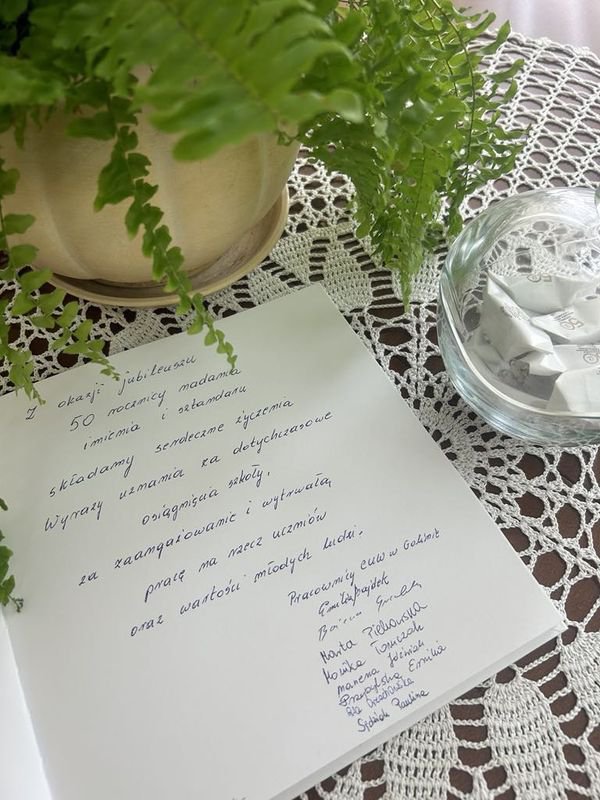 Z okazji jubileuszu
50 rocznicy nadania
imienia i sztandaru
składamy serdeczne życzenia
Wyrazy uznania za dotychczasowe
osiągnięcia szkoły,
za zaangażowanie i wytrwałą
pracę na rzecz uczniów
oraz wartości młodych ludzi.
Pracownicy CUW w Golinie
Emilia
Marta Piekarska
Monika Tomczak
Marlena Jóźwiak
Przybylska Emilia
Paulina